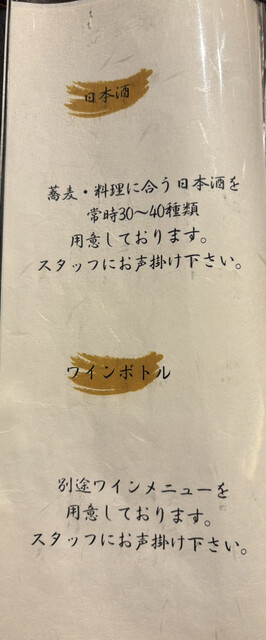 日本酒
蕎麦・料理に合う日本酒を
常時30～40種類
用意しております。
スタッフにお声掛け下さい。
ワインボトル
別途ワインメニューを
用意しております。
スタッフにお声掛け下さい。